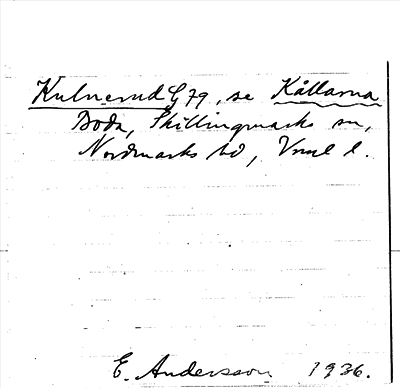 Kulnerud G 79, se Kållarna
Boda, Skillingmarks sn,
Nordmarks hd, Vrml l.
E. Andersson 1936.